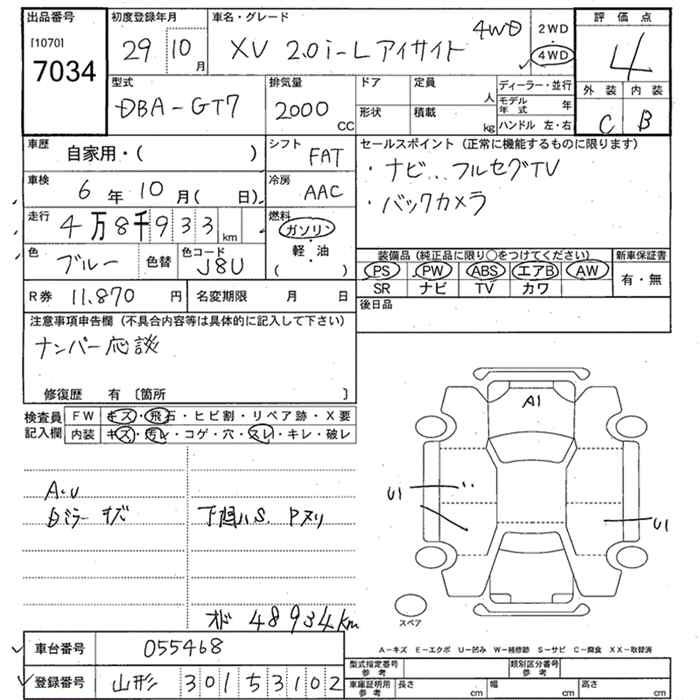 出品番号
[1070]
7034
初度登録年月
29 10 月
車名・グレード
XV 2.0i-L アイサイト 4WD
2WD
4WD
評価点
4
外装 内装
C B
型式
DBA-GT7
排気量
2000 CC
ドア
形状
定員
人
積載
kg
ディーラー・並行
モデル年式 年
ハンドル 左・右
車歴
自家用・( )
シフト
FAT
車検
6 年 10 月( 日)
冷房
AAC
走行
4万8千933 km
燃料
ガソリン
軽・油
( )
色
ブルー 色替
色コード
J8U
セールスポイント(正常に機能するものに限ります)
・ナビ…フルセグTV
・バックカメラ
装備品(純正品に限り○をつけてください)
PS PW ABS エアB AW
SR ナビ TV カワ
新車保証書
有・無
R券 11,870 円
名変期限 月 日
後日品
注意事項申告欄(不具合内容等は具体的に記入して下さい)
ナンバー応談
修復歴 有〔箇所 〕
検査員記入欄
FW キズ・飛石・ヒビ割・リペア跡・X要
内装 キズ・汚レ・コゲ・穴・スレ・キレ・破レ
A.U
ミラー キズ
下廻りS. Pヌリ
オド 48934km
A1
U1
U1
スペア
A-キズ E-エクボ U-凹み W-補修跡 S-サビ C-腐食 XX-取替済
車台番号 055468
登録番号 山形 301 ち 3102
型式指定番号
参考
類別区分番号
参考
車庫証明用
参考
長さ cm
幅 cm
高さ cm